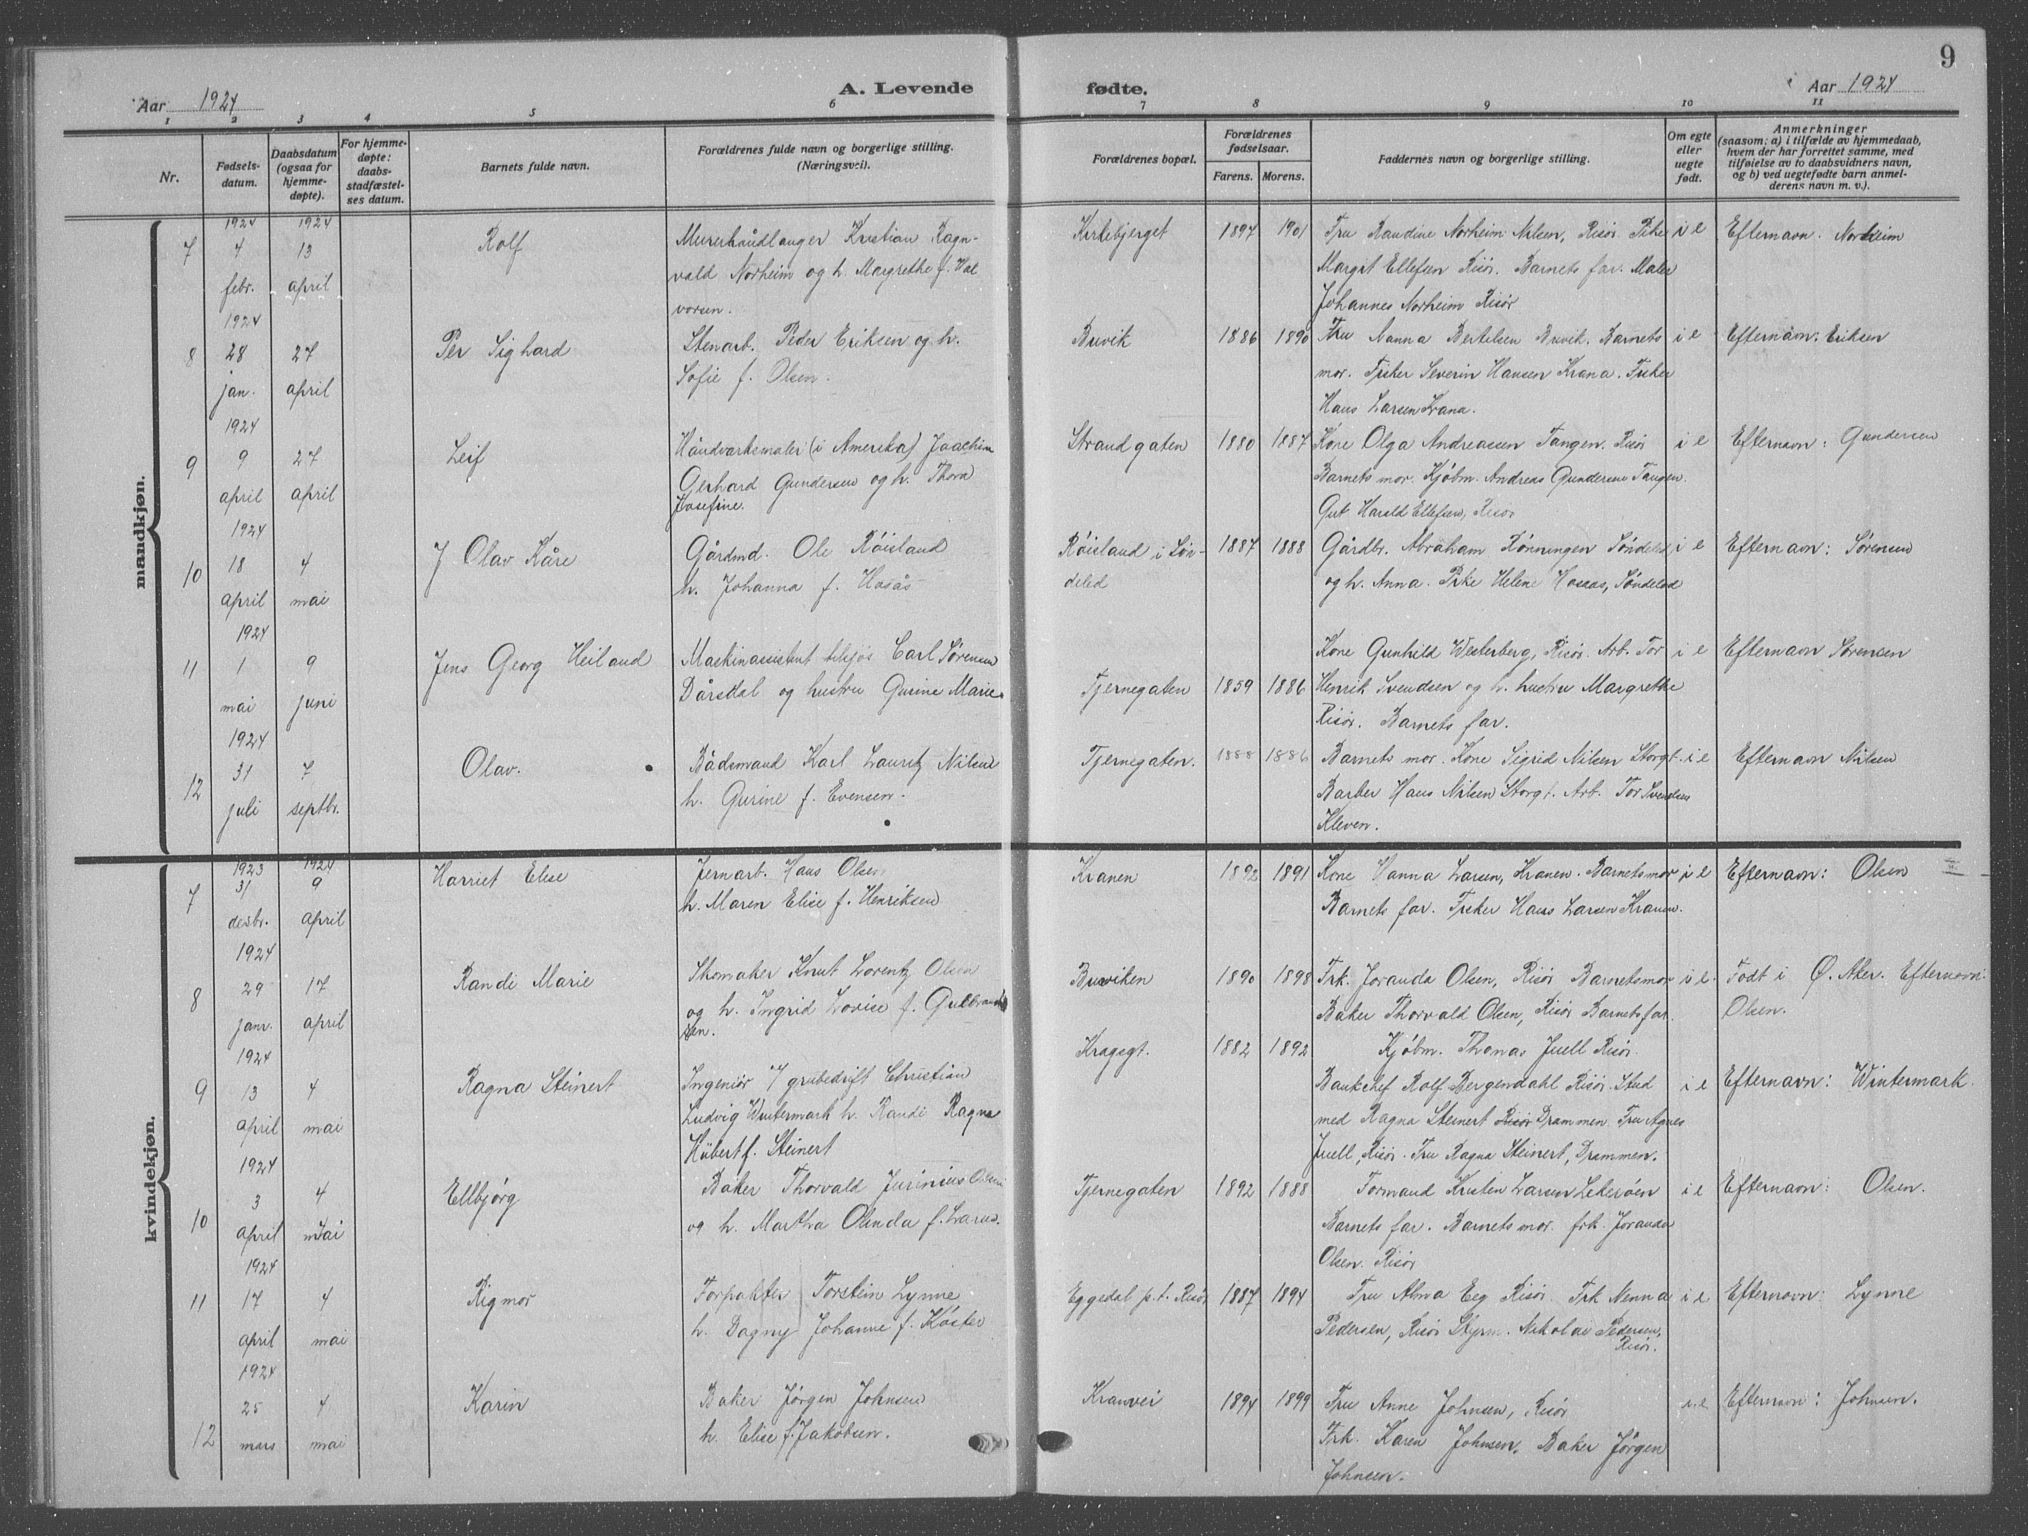 9
Aar 1924
A. Levende
fødte.
Aar 1924
1 2 3 4 5 6 7 8 9 10 11
Nr.
Fødsels-
datum.
Daabsdatum
(ogsaa for
hjemme-
døpte).
For hjemme-
døpte:
daabs-
stadfæstel-
ses datum.
Barnets fulde navn.
Forældrenes fulde navn og borgerlige stilling.
(Næringsvei).
Forældrenes bopæl.
Forældrenes
fødselsaar.
Farens. Morens.
Faddernes navn og borgerlige stilling.
Om egte
eller
uegte
født.
Anmerkninger
(saasom: a) i tilfælde av hjemmedaab,
hvem der har forrettet samme, med
tilføielse av to daabsvidners navn,
og b) ved uegtefødte barn anmel-
derens navn m. v.).
mandkjøn.
7
1924
4
febr.
1924
13
april
Rolf
Murerhåndlanger Kristian Ragn-
vald Norheim og h. Margrethe f. Hal
vorsen.
Kirkebjerget
1897 1901
Fru Baudine Norheim Nilsen, Risør. Pike
Margit Ellefsen Risør. Barnets far. Maler
Johannes Norheim Risør
i e
Efternavn. Norheim
8
1924
28
jan.
27
april
Per Sighard
Stenarb. Peder Eriksen og h.
Sofie f. Olsen.
Buvik
1886 1890
Fru Nanna Bertelsen Buvik. Barnets
mor. Fisker Severin Hansen Krana. Fisker
Hans Larsen Krana.
i e
Efternavn: Eriksen
9
1924
9
april
27
april
Leif
Håndverksmaler (i Amerika) Joachim
Gerhard Gundersen og h. Thora
Josefine.
Strandgaten
1880 1887
Kone Olga Andreasen Tangen. Risør
Barnets mor. Kjøbm. Andreas Gundersen Tangen.
Gut Harald Ellefsen, Risør
i e
Efternavn: Gundersen
10
1924
18
april
4
mai
J Olav Kåre
Gårdmd. Ole Røisland
h. Johanna f. Hosås
Røisland i Søn-
deled
1887 1888
Gårdbr. Abraham Rønningen Søndeled
og h. Anna. Pike Helene Hosaas, Søndeled
i e
Efternavn: Sørensen
11
1924
1
mai
9
juni
Jens Georg Heiland
Maskinassistent tilsjøs Carl Sørensen
Dårsdal og hustru Gurine Marie.
Tjernegaten
1859 1886
Kone Gunhild Westerberg, Risør. Arb. Tor
Henrik Svendsen og h. hustru Margrethe
Risør. Barnets far.
i e
Efternavn Sørensen
12
1924
31
juli
7
septbr.
Olav.
Bådsmand Karl Lauritz Nilsen
h. Gurine f. Evensen.
Tjernegaten.
1888 1886
Barnets mor. Kone Sigrid Nilsen Storgt.
Barber Hans Nilsen Storgt. Arb. Tor Svendsen
Kleven.
i e
Efternavn Nilsen
kvindekjøn.
7
1923
31
desbr.
1924
9
april
Harriet Elise
Jernarb. Hans Olsen
h. Maren Elise f. Henriksen
Kranen
1892 1891
Kone Hanna Larsen, Kranen. Barnets mor
Barnets far. Fisker Hans Larsen Kranen.
i e
Efternavn: Olsen
8
1924
29
janr.
17
april
Randi Marie
Skomaker Knut Lorentz Olsen
og h. Ingrid Lovise f. Gulbrand
sen.
Buviken
1890 1898
Frk. Joranda Olsen, Risør Barnets mor
Baker Thorvald Olsen, Risør Barnets far.
i e.
Født i Ø. Aker. Efternavn:
Olsen.
9
1924
13
april
4
mai
Ragna Steinert
Ingeniør v/ grubedrift Christian
Ludvig Wintermark h. Randi Ragna
Hübert f. Steinert
Kragsgt.
1882 1892
Kjøbm. Thomas Juell Risør.
Bankchef Rolf Bergendahl Risør. Stud
med Ragna Steinert Risør Drammen. Fru Agnes
Juell, Risør. Fru Ragna Steinert, Drammen.
i e
Efternavn: Wintermark.
10
1924
3
april
4
mai
Ellbjørg
Baker Thorvald Jurinius Olsen
og h. Martha Olinda f. Larsen.
Tjernegaten
1892 1888
Formand Kristen Larsen Lekerøen
Barnets far. Barnets mor. frk. Joranda
Olsen. Risør
i e
Efternavn: Olsen.
11
1924
17
april
4
mai
Rigmor
Forpakter Torstein Lynne
h. Dagny Johanne f. Köster
Eggedal p.t. Risør
1887 1894
Fru Alma Eeg Risør. Frk Nenna
Pedersen, Risør Styrm. Nikolai Pedersen,
Risør.
i e
Efternavn: Lynne
12
1924
25
mars
4
mai
Karin
Baker Jørgen Johnsen
h. Elise f. Jakobsen.
Kranvei
1894 1899
Fru Anne Johnsen, Risør
Frk. Karen Johnsen. Baker Jørgen
Johnsen.
i. e
Efternavn: Johnsen.